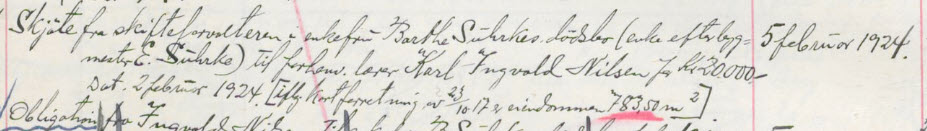 Skjøte fra skifteforvalteren i enkefru Barthe Sührkes dødsbo (enke efter byg= 5 februar 1924.
mester E. Sührke) til forhenv. lærer Karl Ingvald Nilsen for Kr 20,000-
Dat. 2 februar 1924. [Iflg. kartforretning av 23/10-17 er eiendommen 783,50 m²]
Obligation fra Ingvald Nilsen